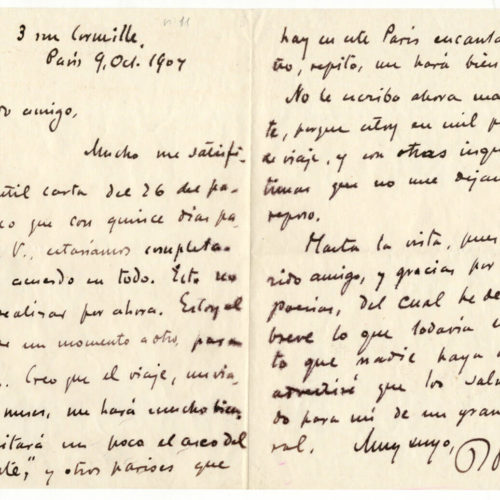 n. 11
3 rue Corneille.
Paris 9. Oct. 1907
do amigo,
Mucho me satisfi-
util carta del 26 del pa-
co que con quince dias pa-
V., estariamos completa-
acuerdo en todo. Esto no
realizar por ahora. Estoy al
de un momento a otro, para
Creo que el viaje,
me hará mucho bien
itará un poco el asco del
y otros parises que
hay en este Paris encanta-
ño, repito, me hará bien
No le escribo ahora mas
te, porque estoy en mil p
de viaje, y con otras inqu
tienas que no me dejan
reposo.
Hasta la vista, pues
rido amigo, y gracias por
poesias, del cual he de
breve lo que todavia
to que nadie haya
advertiré que los salu
do para mi de un gran
ral. Muy suyo,